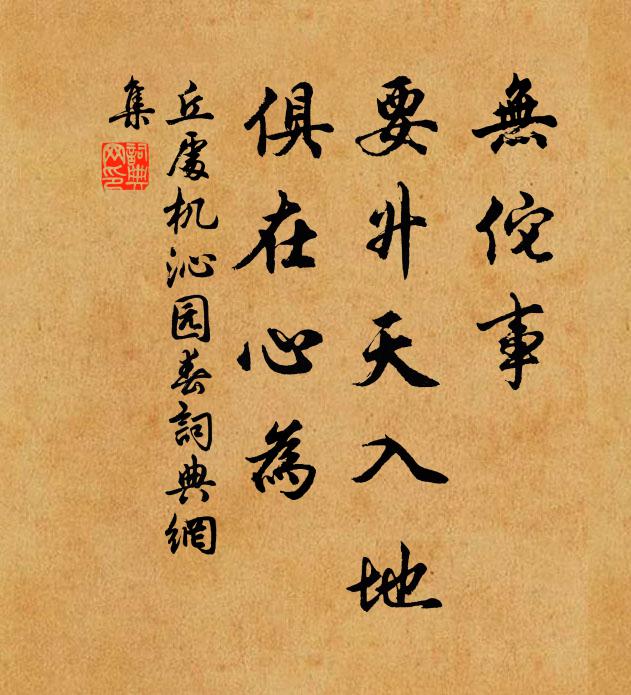 無侘事
要升天入地
俱在心為
丘處机沁园春詞典網
集
詞典網印